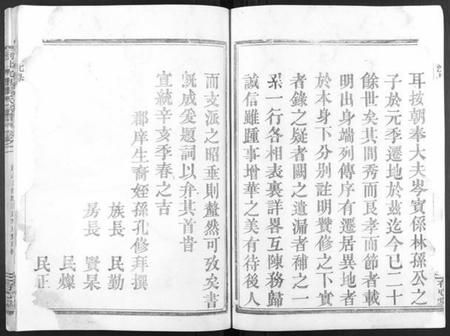 耳按朝奉大夫岑實係林孫公之
子於元季遷地於茲迄今已二十
餘世矣其間秀而良孝而節者載
明出身端列傳序有遷居異地者
於本身下分別註明贊修之下實
者錄之疑者闕之遺漏者補之一
系一行各相表裏詳畧互陳務歸
誠信雖踵事增華之美有待後人
而支派之昭垂則釐然可攷矣書
旣成爰題詞以弁其首旹
宣統辛亥季春之吉
郡庠生裔姪孫孔修拜撰
族長 民勤
房長 賢杲
民爍
民正